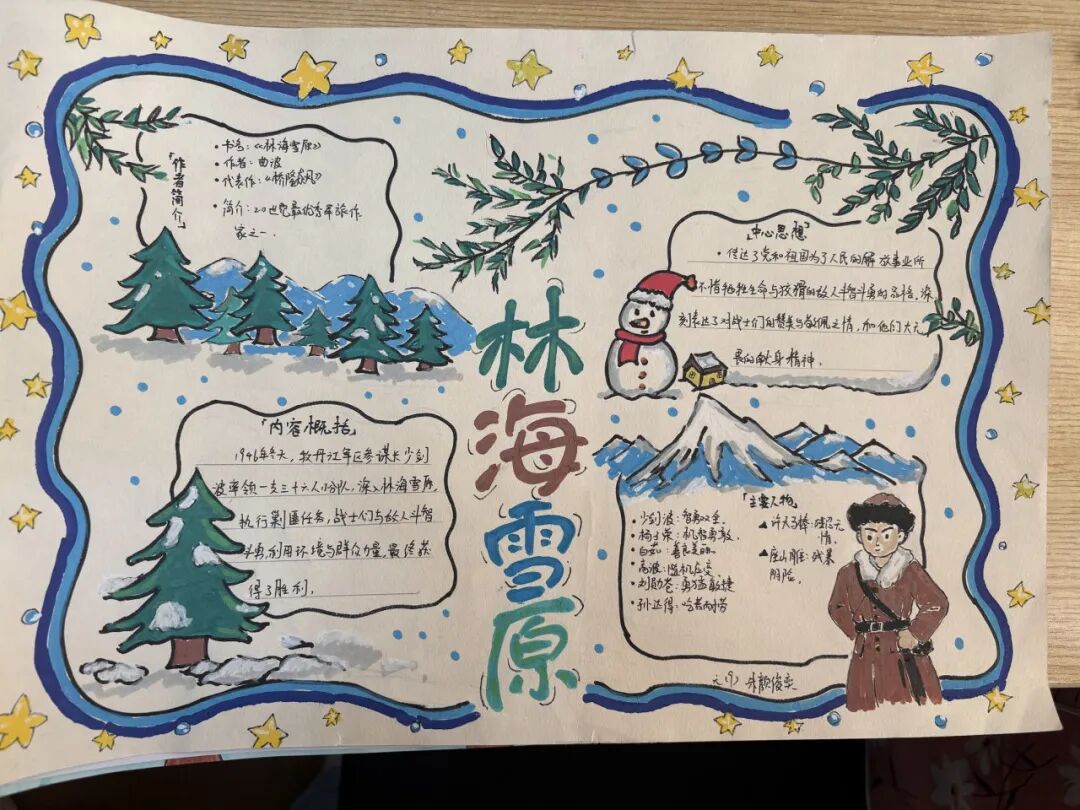 「作者简介」
• 书名：《林海雪原》
• 作者：曲波
• 代表作：《桥隆飙》
• 简介：20世纪最优秀军旅作
家之一.
林海雪原
「中心思想」
• 传达了党和祖国为了人民的解放事业所
不惜牺牲生命与狡猾的敌人斗智斗勇的品格，深
刻表达了对战士们的赞美与敬佩之情，和他们大无
畏的献身精神.
「内容概括」
1946年冬天，牡丹江军区参谋长少剑
波率领一支三十六人小分队，深入林海雪原，
执行剿匪任务，战士们与敌人斗智
斗勇，利用环境与群众力量，最终获
得了胜利.
「主要人物」
• 少剑波：智勇双全.
• 杨子荣：机智勇敢.
• 白茹：善良美丽.
• 高波：随机应变.
• 刘勋苍：勇猛敏捷
• 孙达得：吃苦耐劳
▲ 许大马棒：
▲ 座山雕：
阴险.